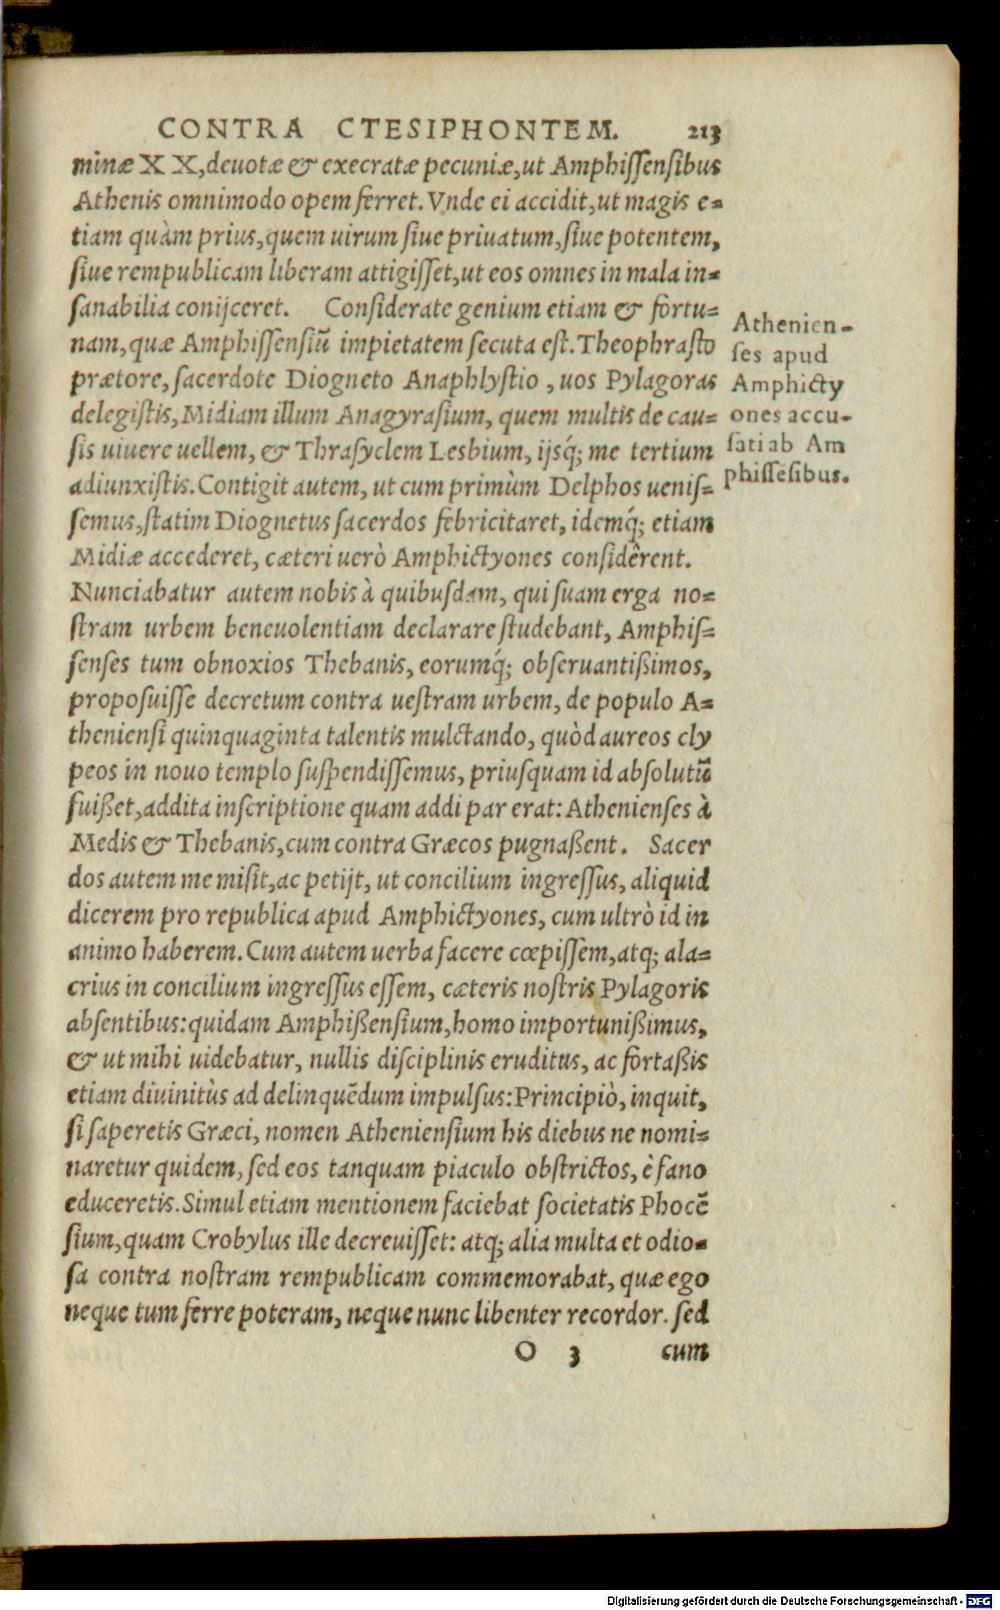 CONTRA CTESIPHONTEM. 213
minæ XX, deuotæ & execratæ pecuniæ, ut Amphiſſenſibus
Athenis omnimodo opem ferret. Vnde ei accidit, ut magis e-
tiam quàm prius, quem uirum ſiue priuatum, ſiue potentem,
ſiue rempublicam liberam attigiſſet, ut eos omnes in mala in-
ſanabilia conijceret. Conſiderate genium etiam & fortu-
nam, quæ Amphiſſenſiũ impietatem ſecuta eſt. Theophraſto
prætore, ſacerdote Diogneto Anaphlyſtio, uos Pylagoras
delegiſtis, Midiam illum Anagyraſium, quem multis de cau-
ſis uiuere uellem, & Thraſyclem Lesbium, ijsq́; me tertium
adiunxiſtis. Contigit autem, ut cum primùm Delphos ueniſ-
ſemus, ſtatim Diognetus ſacerdos febricitaret, idemq́; etiam
Midiæ accederet, cæteri uerò Amphictyones conſidêrent.
Nunciabatur autem nobis à quibuſdam, qui ſuam erga no-
ſtram urbem beneuolentiam declarare ſtudebant, Amphiſ-
ſenſes tum obnoxios Thebanis, eorumq́; obſeruantißimos,
propoſuiſſe decretum contra ueſtram urbem, de populo A-
thenienſi quinquaginta talentis mulctando, quòd aureos cly
peos in nouo templo ſuſpendiſſemus, priuſquam id abſolutũ
fuißet, addita inſcriptione quam addi par erat: Athenienſes à
Medis & Thebanis, cum contra Græcos pugnaßent. Sacer
dos autem me miſit, ac petijt, ut concilium ingreſſus, aliquid
dicerem pro republica apud Amphictyones, cum ultrò id in
animo haberem. Cum autem uerba facere cœpiſſem, atq; ala-
crius in concilium ingreſſus eſſem, cæteris noſtris Pylagoris
abſentibus: quidam Amphißenſium, homo importunißimus,
& ut mihi uidebatur, nullis diſciplinis eruditus, ac fortaßis
etiam diuinitùs ad delinquẽdum impulſus: Principiò, inquit,
ſi ſaperetis Græci, nomen Athenienſium his diebus ne nomi-
naretur quidem, ſed eos tanquam piaculo obſtrictos, è fano
educeretis. Simul etiam mentionem faciebat ſocietatis Phocẽ
ſium, quam Crobylus ille decreuiſſet: atq; alia multa et odio-
ſa contra noſtram rempublicam commemorabat, quæ ego
neque tum ferre poteram, neque nunc libenter recordor. ſed
O 3 cum
Athenien-
ſes apud
Amphicty
ones accu-
ſati ab Am
phiſſẽſibus.
Digitalisierung gefördert durch die Deutsche Forschungsgemeinschaft - DFG